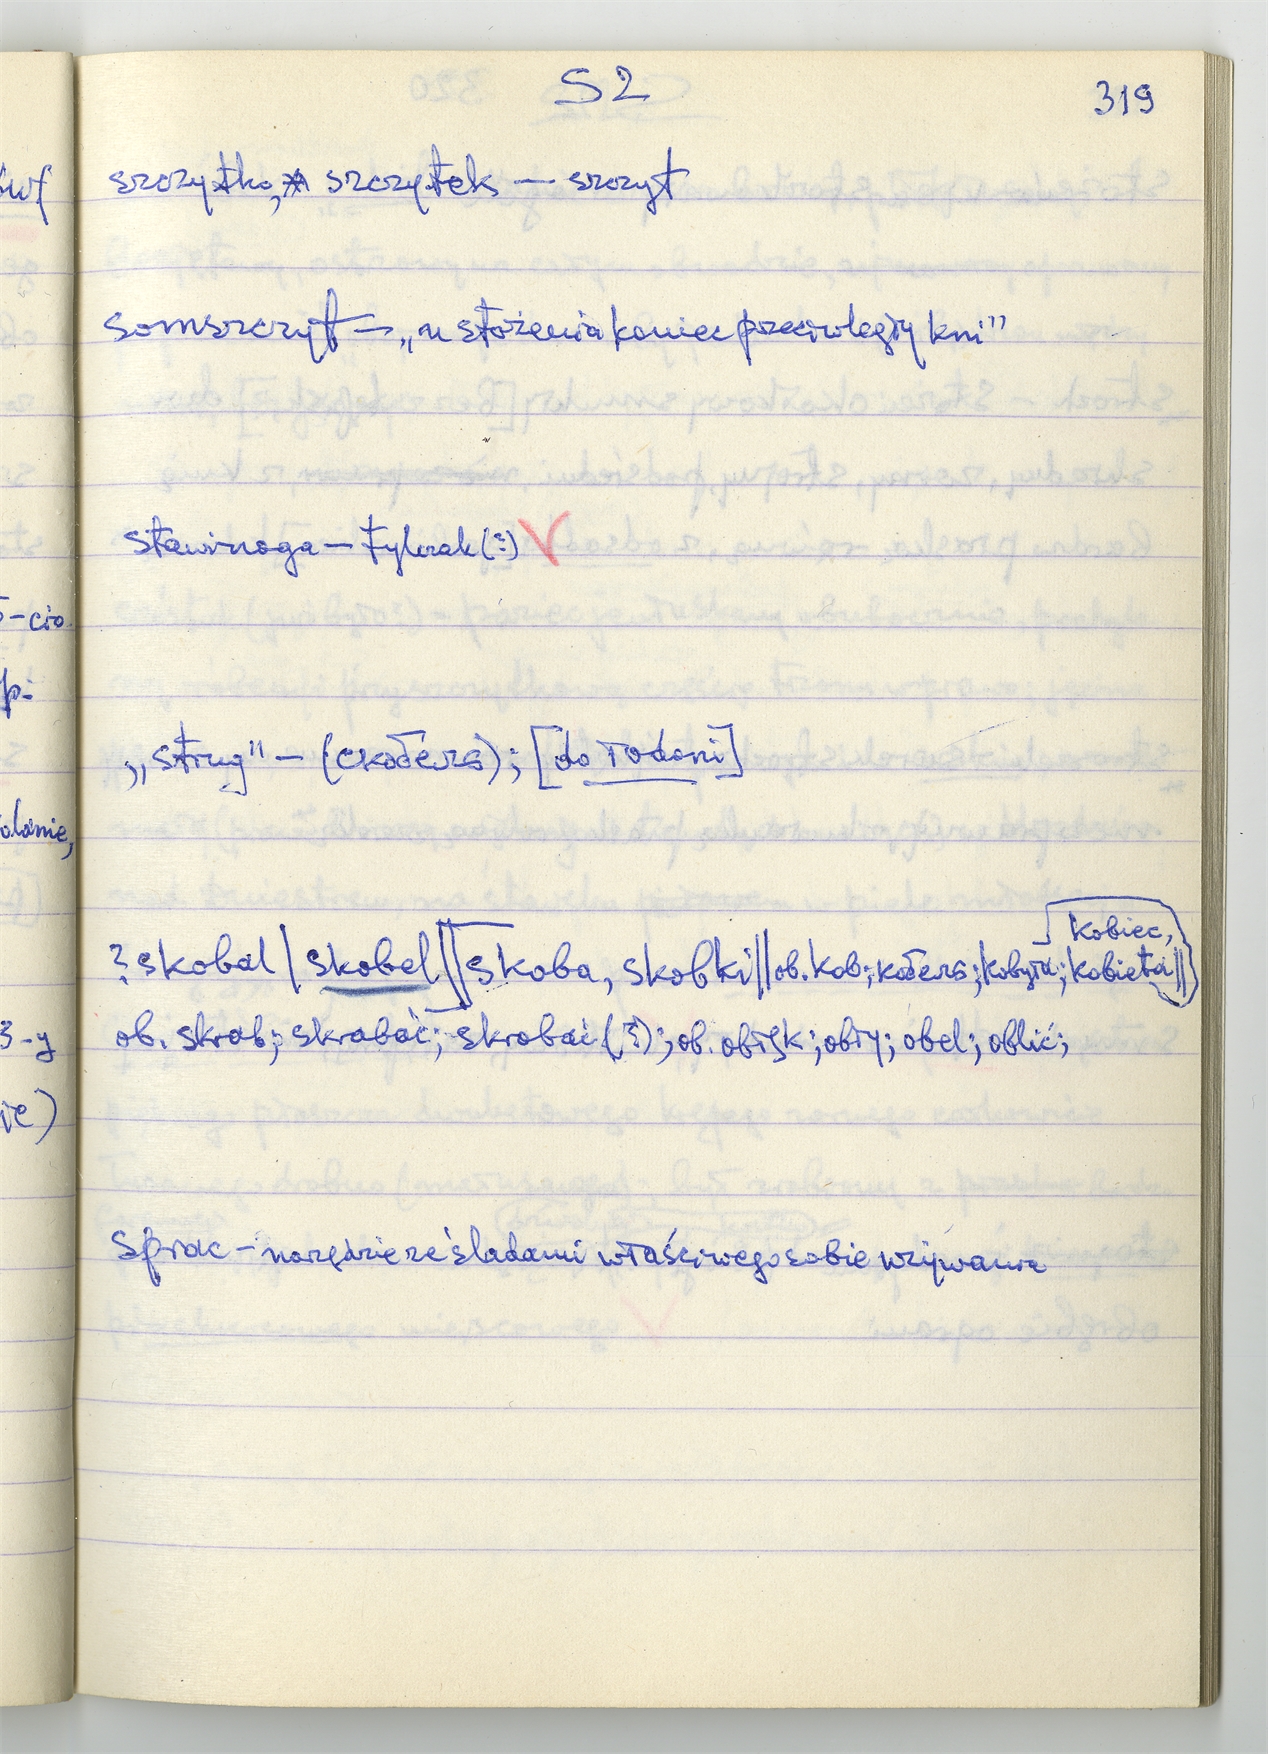 S2
319
szczytko, szczytek — szczyt
somszczyt — „u stożenia koniec przeciwległy kni"
stawinoga — tylczak (?)
„strug" — ( ); [do łodoni]
? skobal | skobel || skoba, skobki || ob. kob; kobyła; kobieta ||
kobiec,
ob. skrob; skrabać; skrobać (?); ob. obłęk; obły; obel; oblić;
sprac — narzędzie ze śladami właściwego sobie używania
5-cio
p:
olanie,
3-y